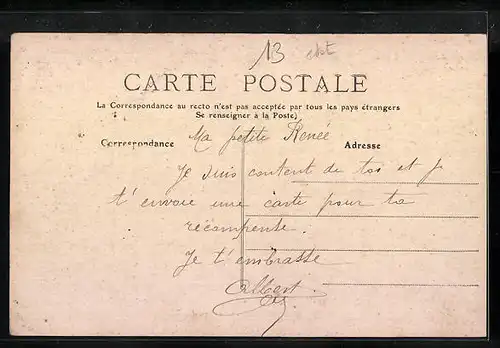 13
CARTE POSTALE
La Correspondance au recto n'est pas acceptée par tous les pays étrangers
Se renseigner à la Poste)
Correspondance
Adresse
Ma petite Renée
Je suis content de toi et je
t'envoie une carte pour ta
récompense.
Je t'embrasse
Albert.